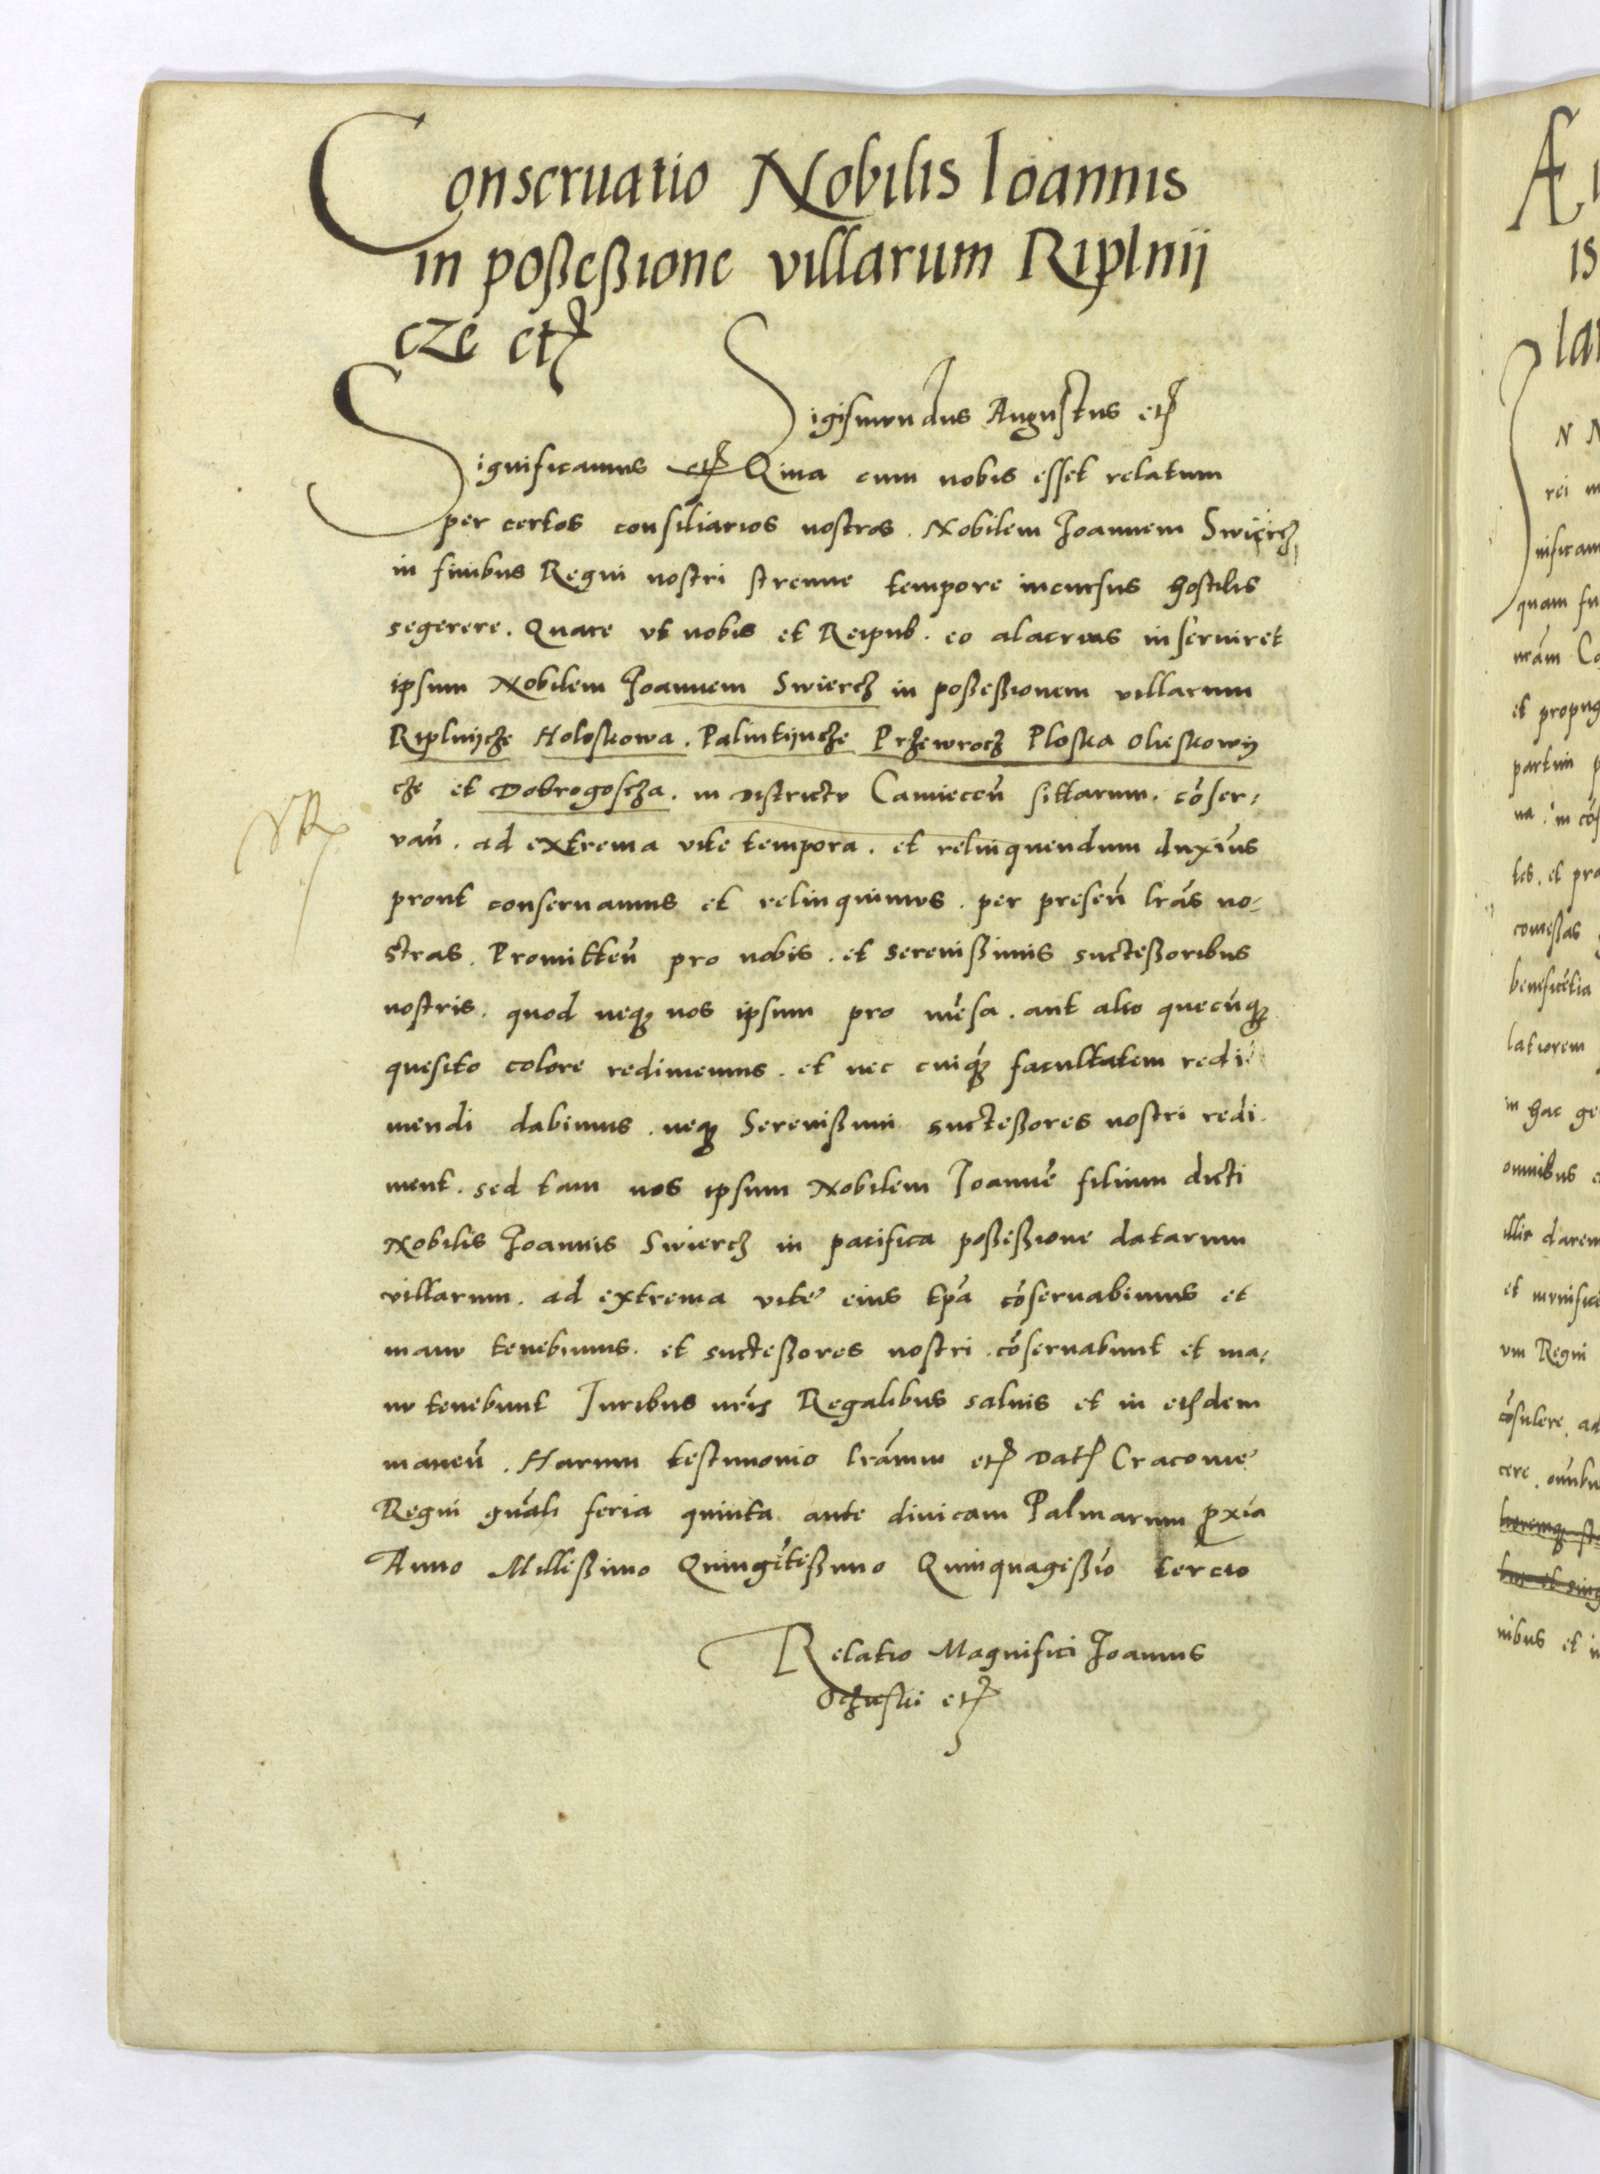 Conseruatio Nobilis Ioannis
in poßeßione villarum Riplnij
cze etc
Sigismundus Augustus etc
Significamus etc Quia cum nobis esset relatum
per certos consiliarios nostros. Nobilem Joannem Swierch
in finibus Regni nostri strenue tempore incursus hostilis
segerere. Quare vt nobis et Reipub. eo alacrius inserviret
ipsum Nobilem Joannem Swierch in poßeßionem villarum
Riplnijche Holoskowa. Palintijnche Przewroch Ploska Oleskowij
che et Dobrogoscza. in districtu Camiecen̄ sittarum. cōser-
van̄. ad extrema vite tempora. et relinquendum duxim̄s
prout conservamus et relinquimus. per presen̄ lrās no-
stras. Promitten̄ pro nobis. et serenißimis succeßoribus
nostris. quod neqз nos ipsum pro mēsa. aut alio quecūqз
quesito colore redimemus. et nec cuiqз facultatem redi
mendi dabimus. neqз Serenißimi succeßores nostri redi
ment. sed tam nos ipsum Nobilem Joannē filium dicti
Nobilis Joannis Swierch in pacifica poßeßione datarum
villarum. ad extrema vite eius tp̄a cōservabimus et
manu tenebimus. et succeßores nostri cōservabunt et ma-
nu tenebunt Juribus nr̄is Regalibus salvis et in eisdem
manen̄. Harum testimonio lrārum etc Dat Cracovie
Regni gn̄ali feria quinta ante dn̄icam Palmarum pxīa
Anno Milleßimo Quingēteßimo Quinquageßīo tercio
Relatio Magnifici Joannis
Oczieski etc
Æ
is
lar
N N
rei
nificam
quam fu
nrām Co
et propug
partim p
na. in cōs
tes. et pro
comeßas
benificētia
latiorem
in hac ge
omnibus
illis darem
et munifice
um Regni
cōsulere. ad
cere. omnibu
nibus et in